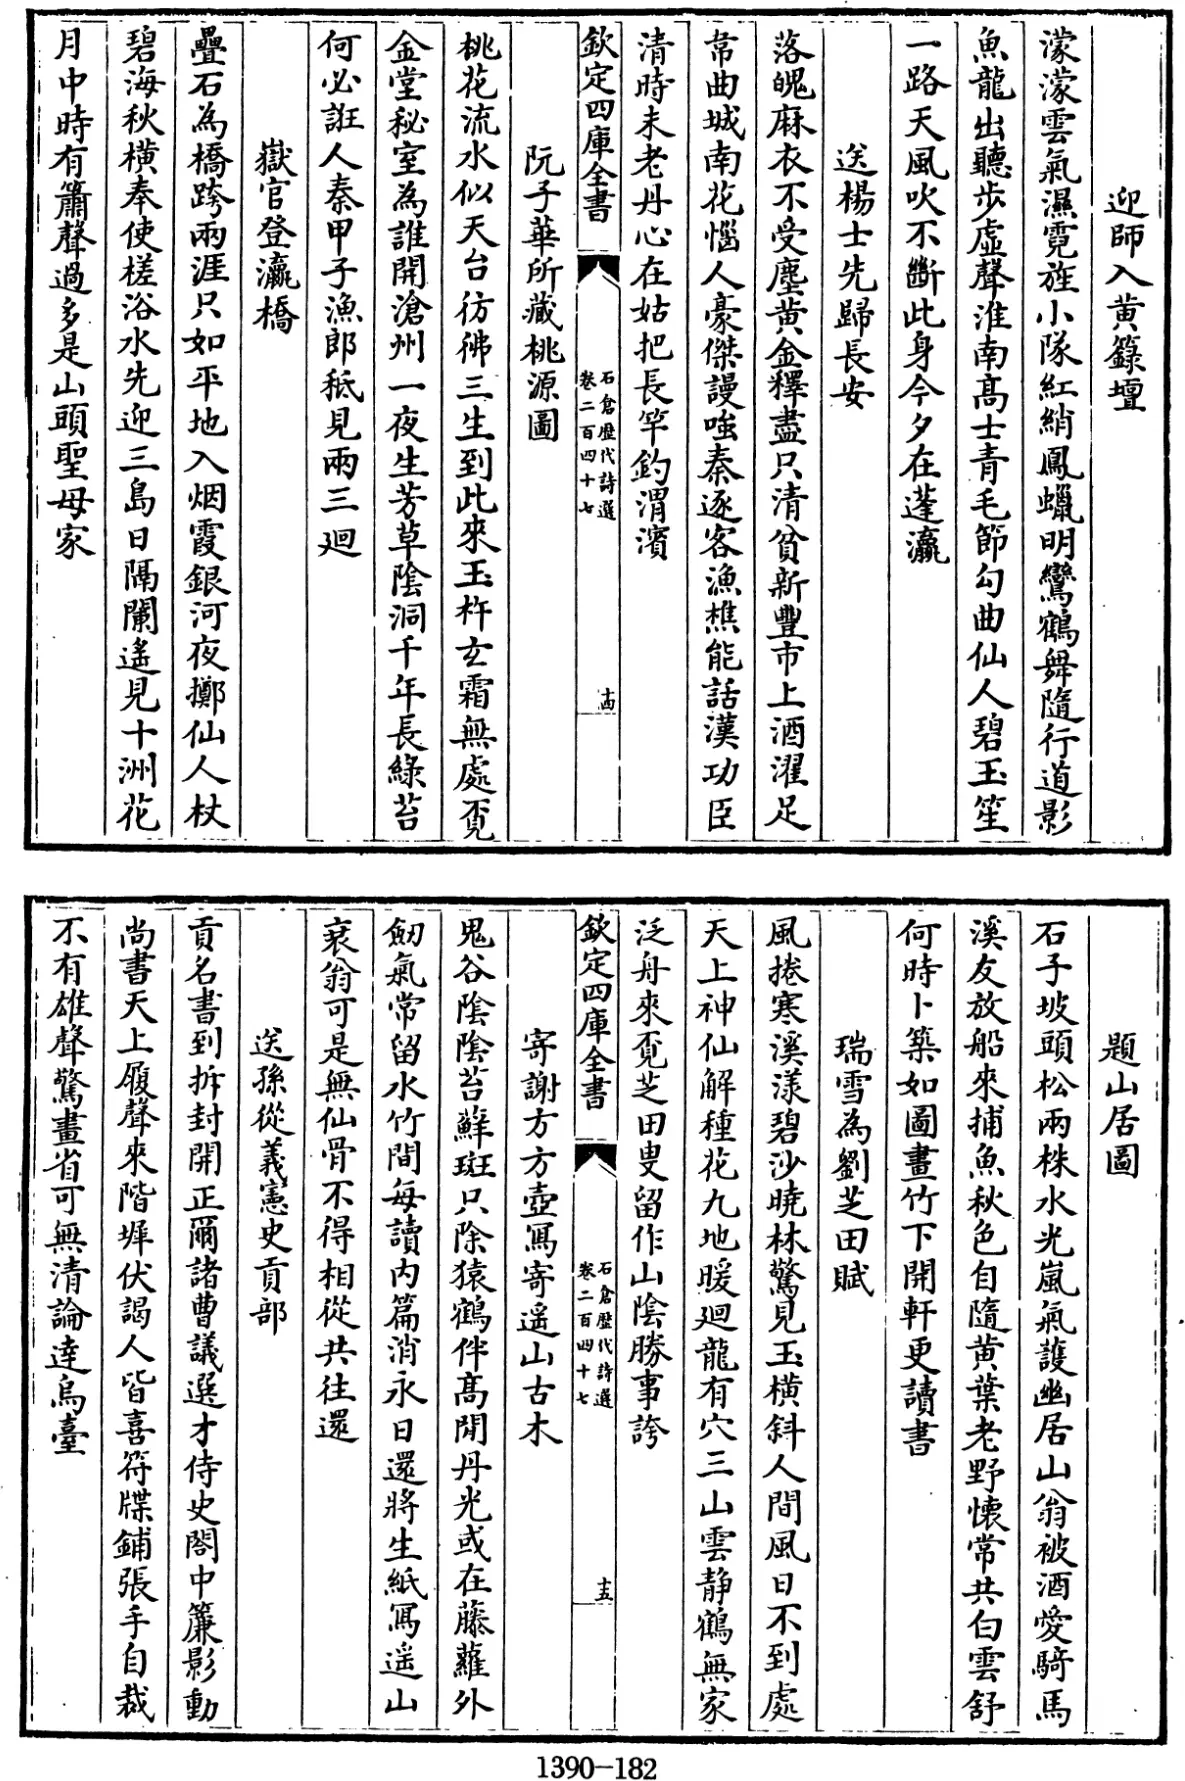 迎師入黄籙壇
濛濛雲氣濕霓旌小隊紅綃鳳蠟明鸞鶴舞隨行道影
魚龍出聽步虛聲淮南髙士青毛節勾曲仙人碧玉笙
一路天風吹不斷此身今夕在蓬瀛
送楊士先歸長安
落魄麻衣不受塵黄金釋盡只清貧新豐市上酒濯足
帝曲城南花惱人豪傑謾嗤秦逐客漁樵能話漢功臣
清時未老丹心在姑把長竿釣渭濱
欽定四庫全書
石倉歷代詩選
卷二百四十七
十四
阮子華所藏桃源圖
桃花流水似天台彷彿三生到此來玉杵玄霜無處覔
金堂秘室為誰開滄州一夜生芳草陰洞千年長綠苔
何必誑人秦甲子漁郎秪見兩三廻
嶽官登瀛橋
疊石為橋跨兩涯只如平地入烟霞銀河夜擲仙人杖
碧海秋橫奉使槎浴水先迎三島日隔闌遙見十洲花
月中時有簫聲過多是山頭聖母家
題山居圖
石子坡頭松兩株水光嵐氣護幽居山翁被酒愛騎馬
溪友放船來捕魚秋色自隨黄葉老野懐常共白雲舒
何時卜築如圖畫竹下開軒更讀書
瑞雪為劉芝田賦
風捲寒溪漾碧沙曉林驚見玉橫斜人間風日不到處
天上神仙解種花九地暖廻龍有穴三山雲静鶴無家
泛舟來覔芝田叟留作山陰勝事誇
欽定四庫全書
石倉歷代詩選
卷二百四十七
十五
寄謝方方壺寫寄遥山古木
鬼谷陰陰苔蘚斑只除猿鶴伴髙閒丹光或在藤蘿外
劒氣常留水竹間每讀内篇消永日還將生紙寫遥山
衰翁可是無仙骨不得相從共往還
送孫從義憲史貢部
貢名書到拆封開正爾諸曹議選才侍史閣中簾影動
尚書天上履聲來階墀伏謁人皆喜符牒鋪張手自裁
不有雄聲驚畫省可無清論達烏臺
1390-182